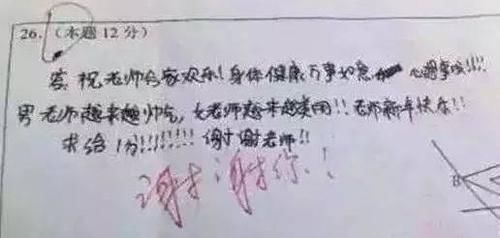 26.（本题12分）
答：祝老师合家欢乐！身体健康万事如意 心想事成!!!
男老师越来越帅气，女老师越来越美丽!!老师新年快乐!!!
求给1分!!!!!!!!谢谢老师!!
谢谢你！
B